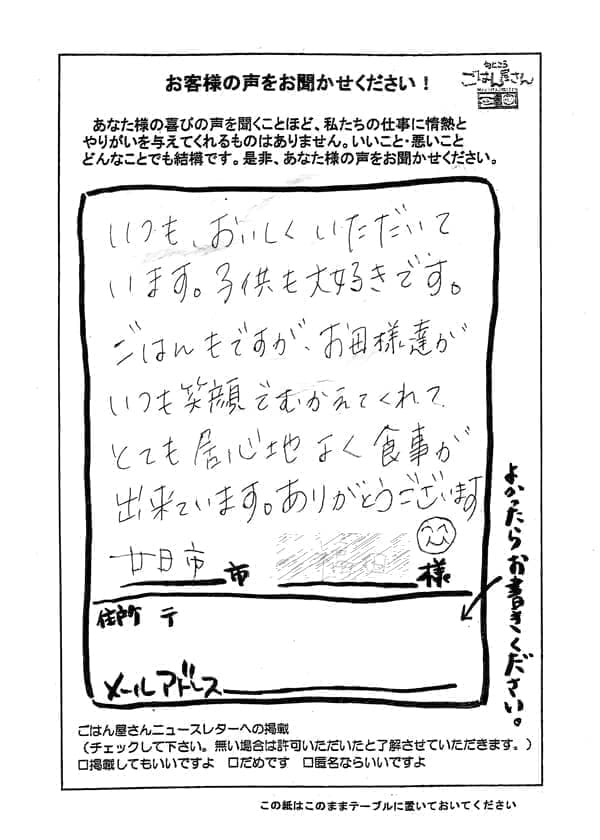 お客様の声をお聞かせください！
ごはん屋さん
あなた様の喜びの声を聞くことほど、私たちの仕事に情熱と
やりがいを与えてくれるものはありません。いいこと・悪いこと
どんなことでも結構です。是非、あなた様の声をお聞かせください。
いつも、おいしくいただいて
います。子供も大好きです。
ごはんもですが、お母様達が
いつも笑顔でむかえてくれて
とても居心地よく食事が
出来ています。ありがとうございます
廿日市 市 様
よかったらお書きください。
住所 〒
メールアドレス
ごはん屋さんニュースレターへの掲載
（チェックして下さい。無い場合は許可いただいたと了解させていただきます。）
□掲載してもいいですよ □だめです □匿名ならいいですよ
この紙はこのままテーブルに置いておいてください